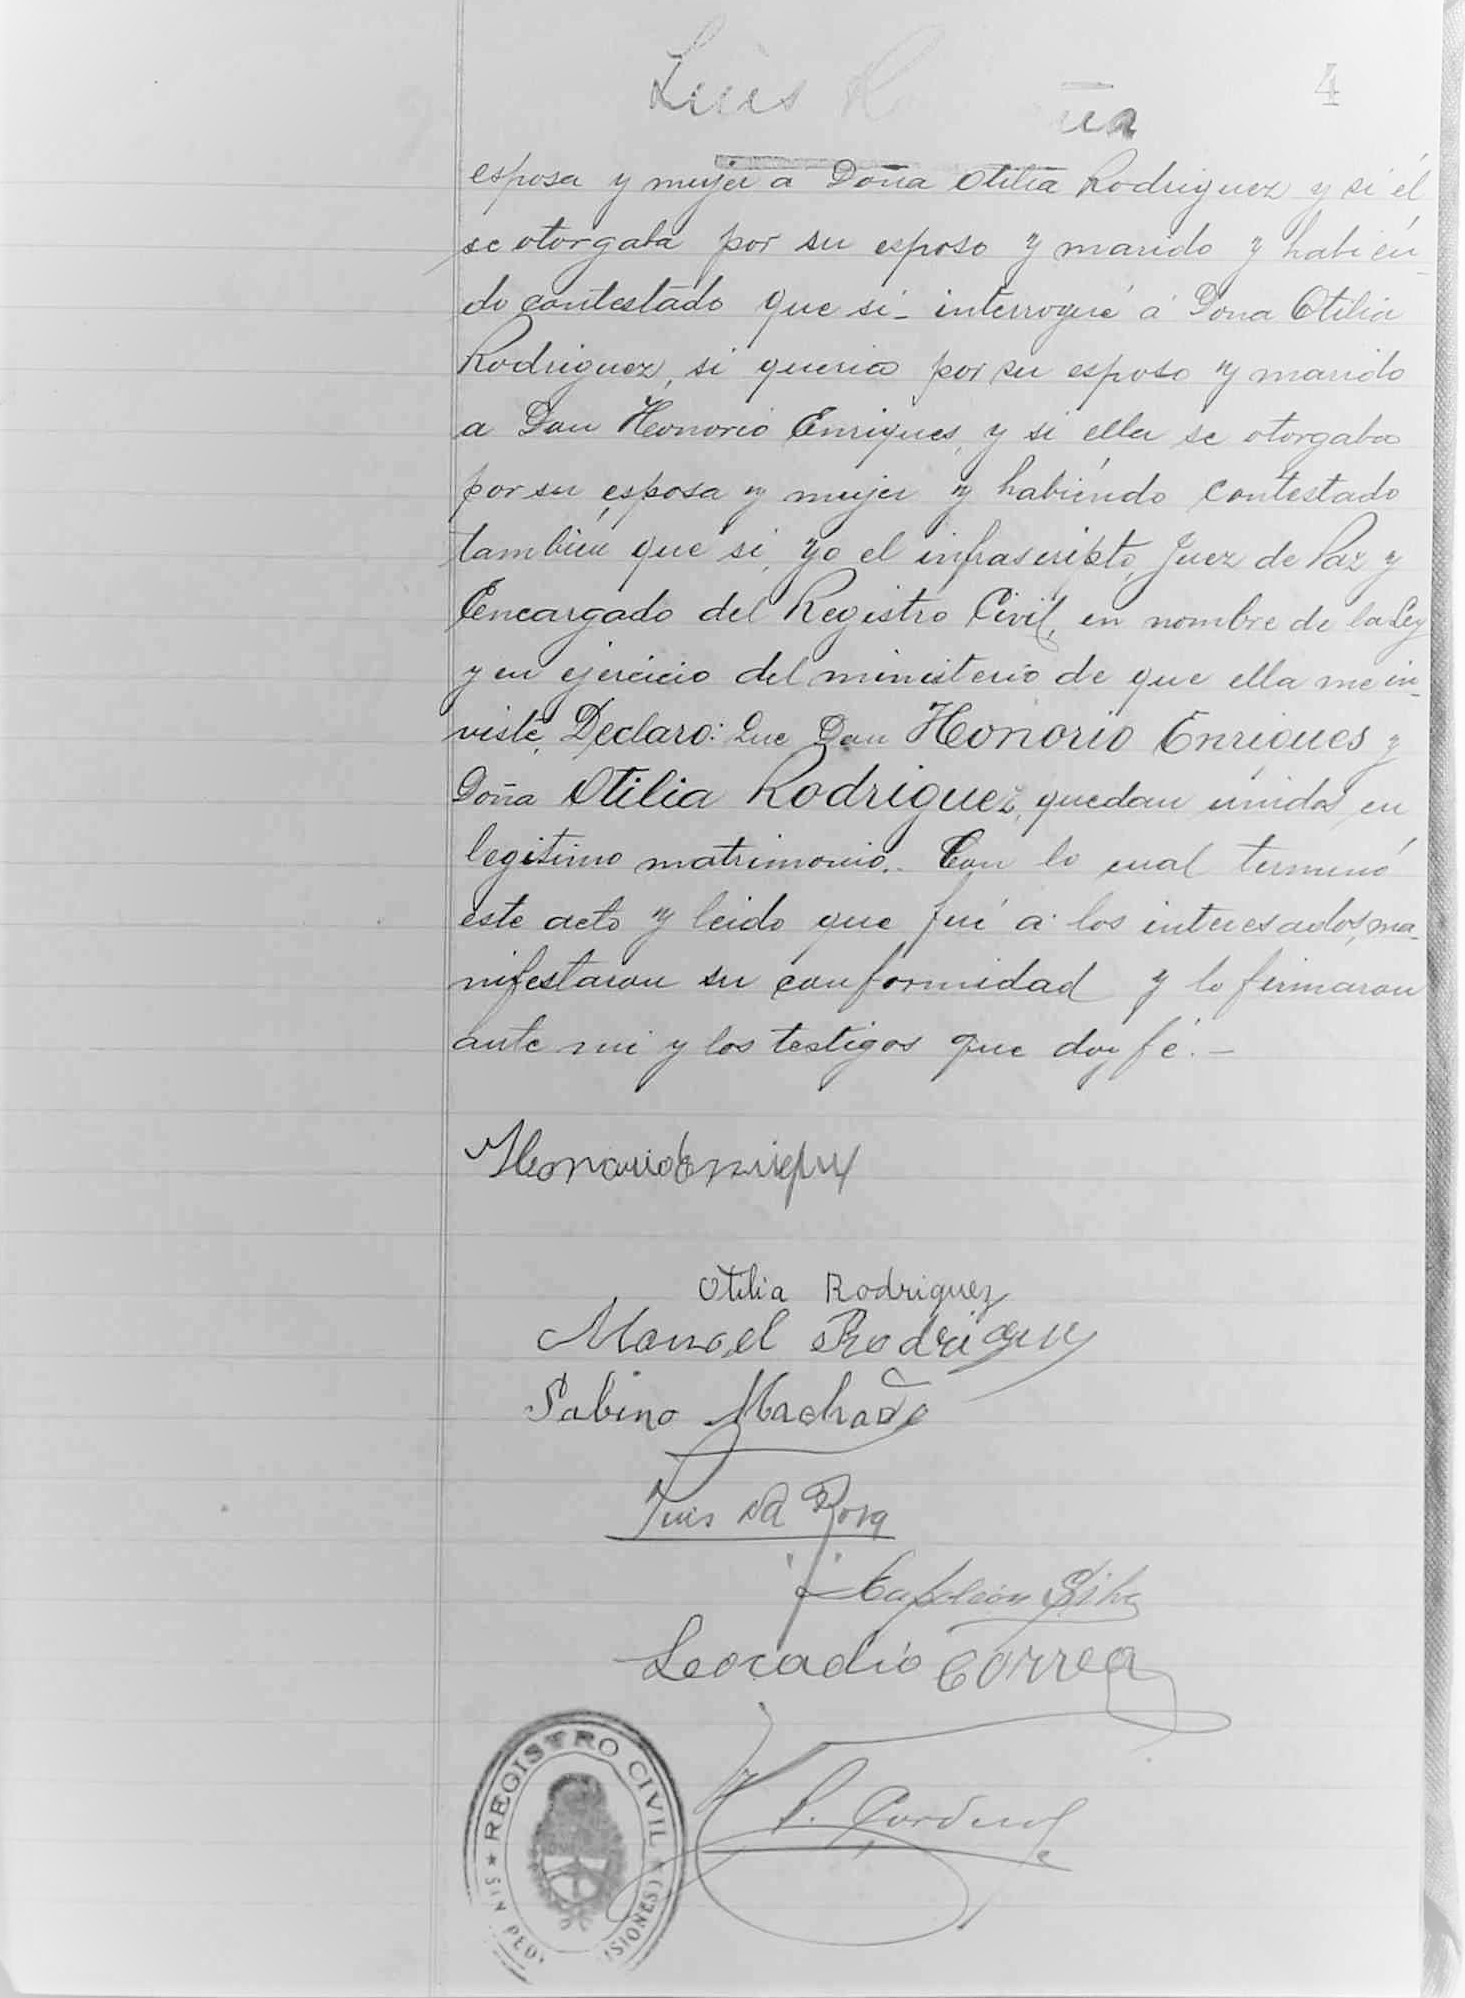 Luis
4
esposa y mujer a Doña Otilia Rodriguez y si él
se otorgaba por su esposo y marido y habién-
do contestado que si - interrogué á Dona Otilia
Rodriguez, si queria por su esposo y marido
a Don Honorio Enriques, y si ella se otorgaba
por su esposa y mujer y habiéndo contestado
tambien que si, yo el infrascripto, Juez de Paz y
Encargado del Registro Civil, en nombre de la Ley
y en ejercicio del ministerio de que ella me in-
viste, Declaro: Que Don Honorio Enriques y
Doña Otilia Rodriguez, quedan unidos en
legitimo matrimonio.. Con lo cual terminó
este acto y leido que fué a los interesados, ma-
nifestaron su conformidad y lo firmaron
ante mi y los testigos que doy fé. -
Honorio Enriques
Otilia Rodriguez
Manoel Rodriguez
Sabino Machado
Luis Da Rosa
Napoleón Silva
Leocadio Correa
REGISTRO CIVIL